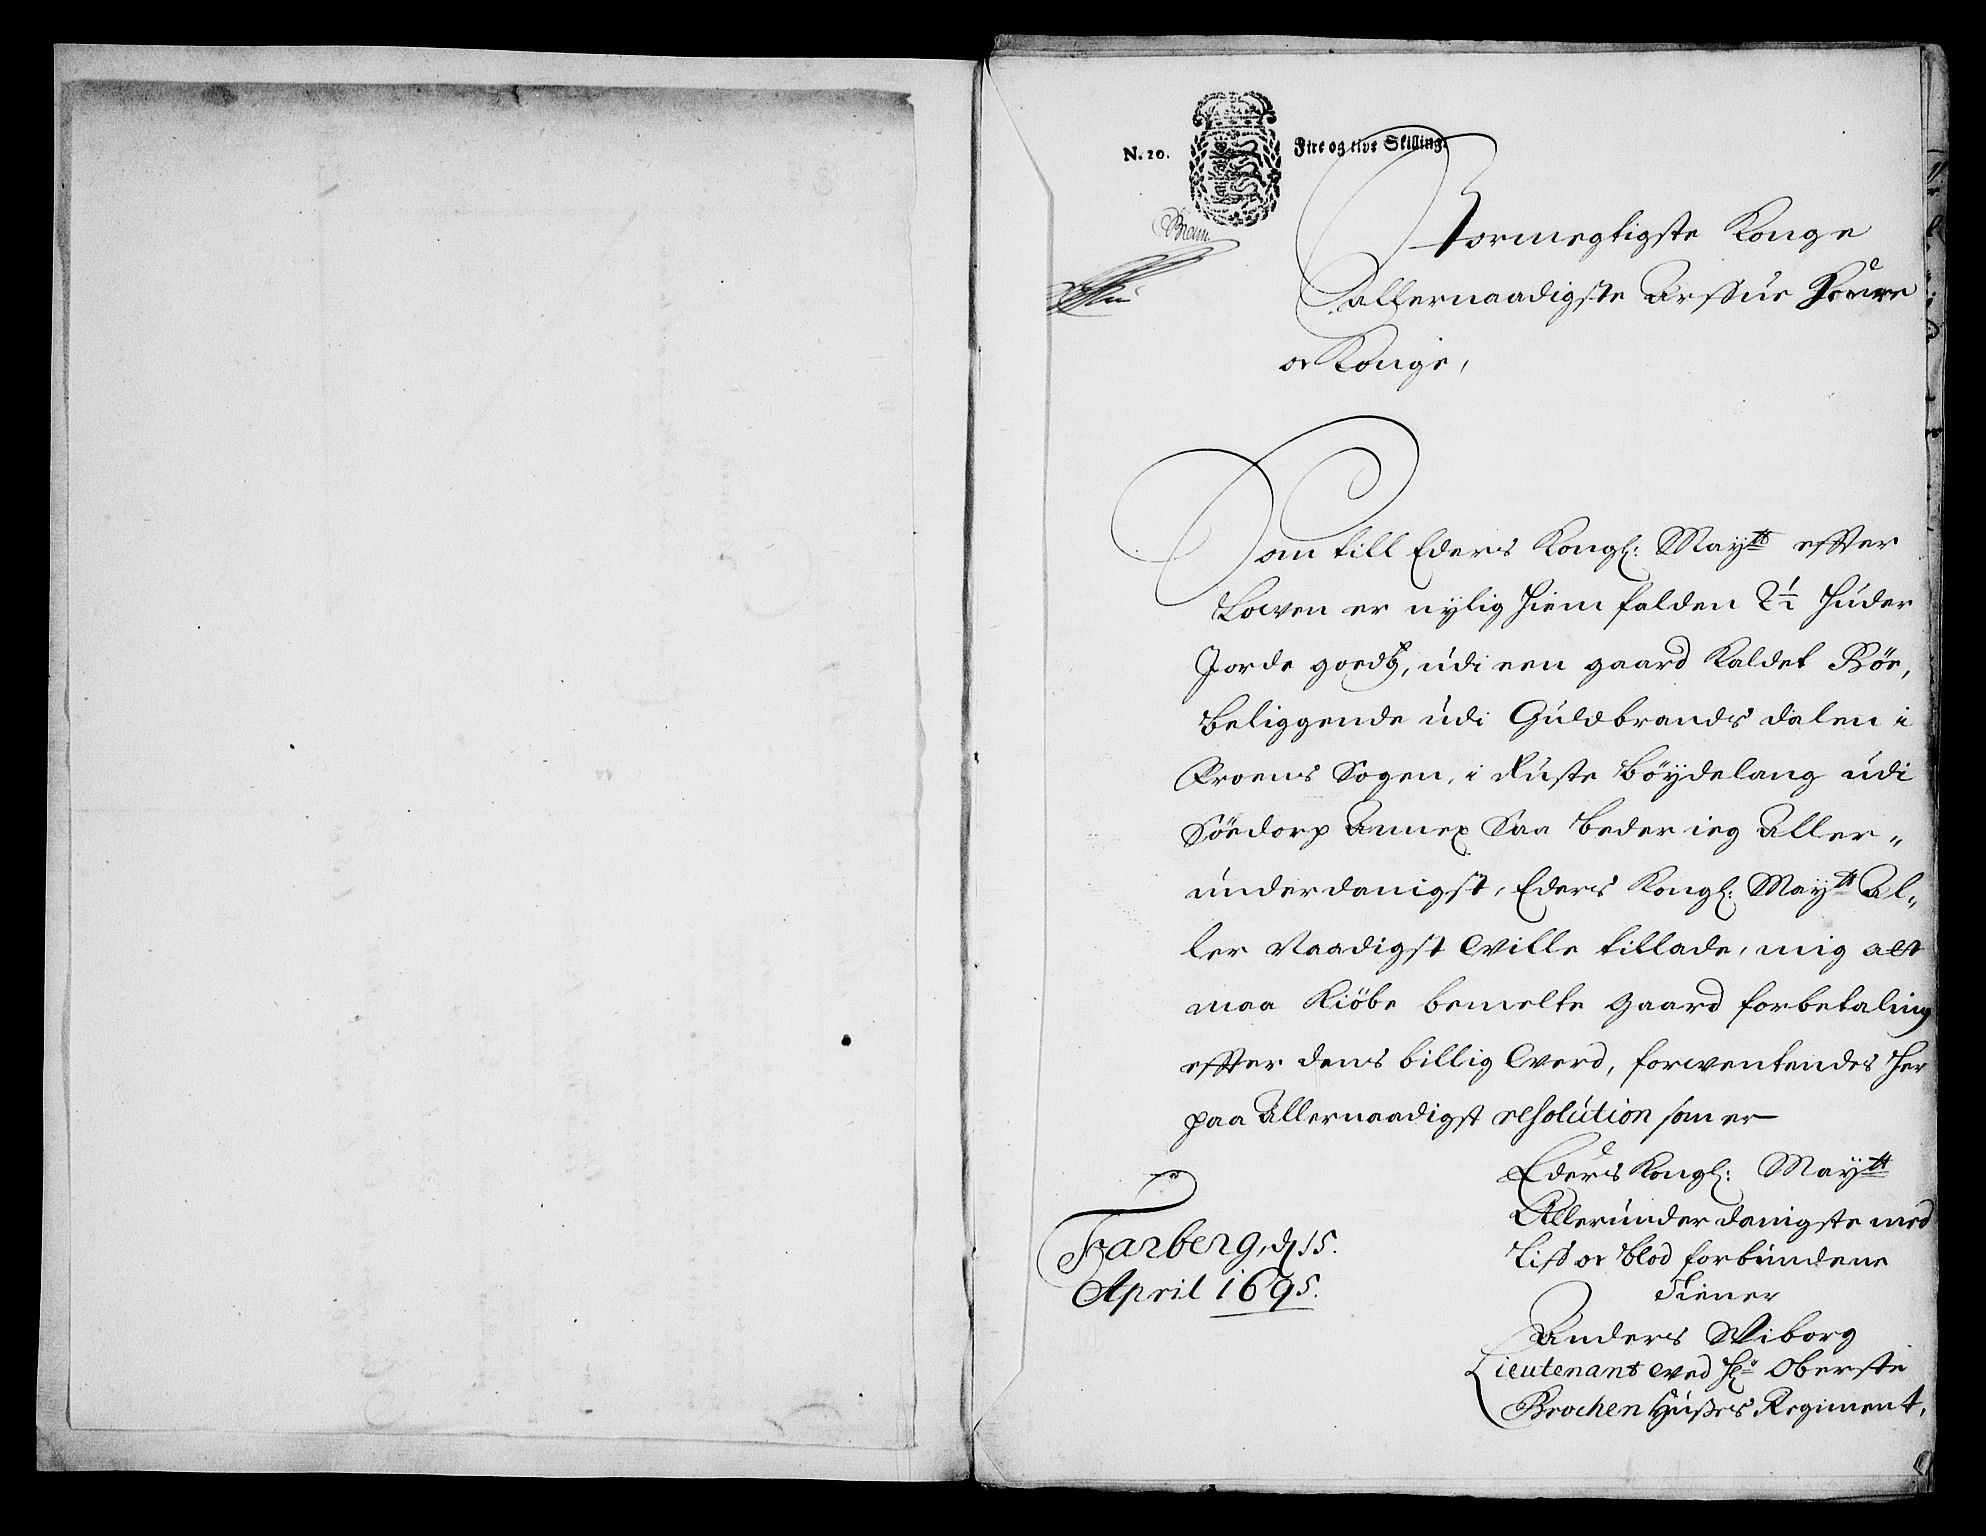 N. 20. Fire og tive Skilling.
Stormegtigste Konge
allernaadigste Arffue Herre
oc Konge,
Som till Eders Kongl: Maytt effter
Lowen er nylig hiem falden 2½ Huder
Jorde goedtz, udi een gaard Kaldet Böe,
beliggende udi Guldbrands dalen i
Froens Sogen, i Ruste böydelaug udi
Söedorp Annex Saa beder ieg Aller„
underdanigst, Eders Kongl: Maytt Al„
ler Naadigst wille tillade, mig att
maa Kiöbe bemelte gaard for betaling
effter dens billig werd, forwentendes her
paa Allernaadigst resolution som er
Eders Kongl: Maytt
Allerunderdanigste med
Liff oc blod forbundene
Tiener
Anders Wiborg
Lieutenant wed Hr Oberste
Brochenhuses Regiment,
Farberg, d 15.
April 1695.